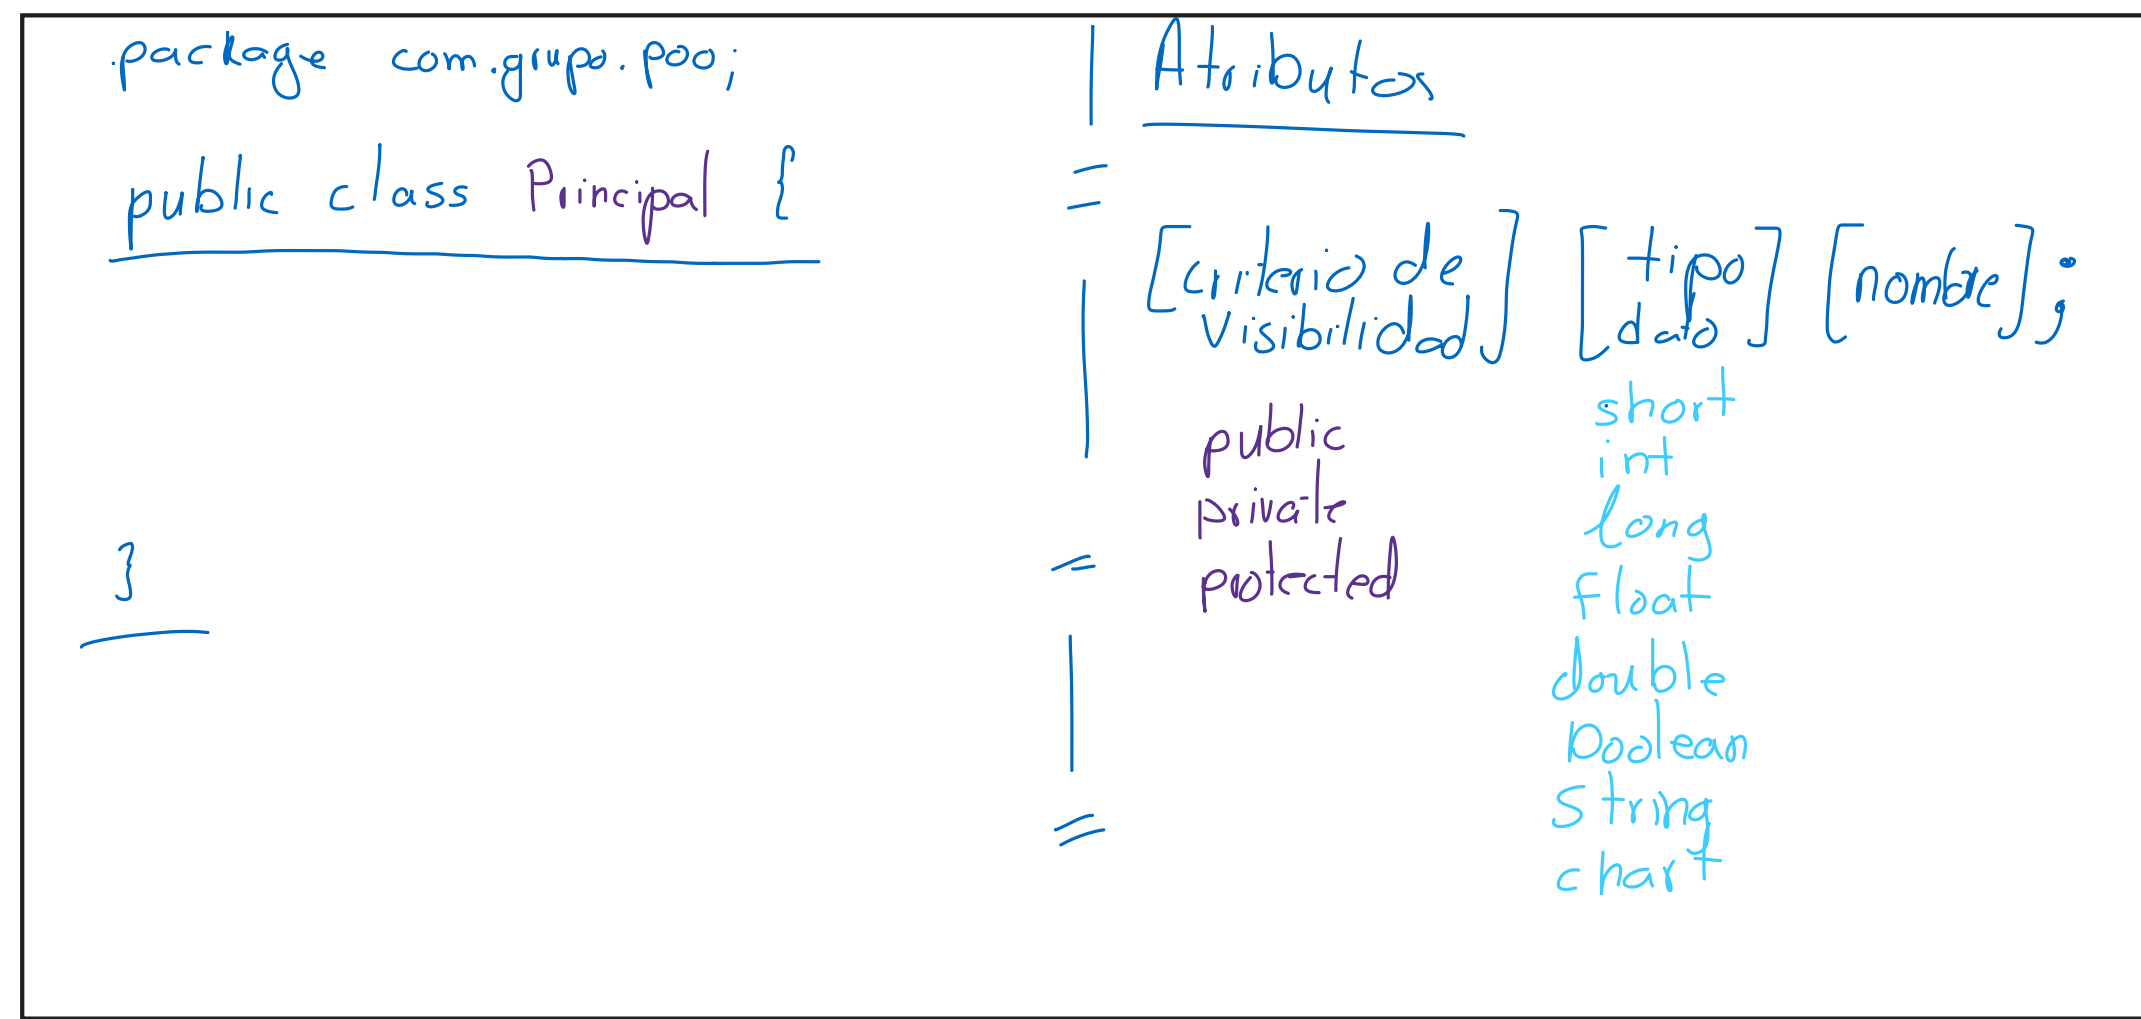 package com.grupo.poo;
public class Principal {
}
Atributos
[criterio de visibilidad] [tipo dato] [nombre];
public
private
protected
short
int
long
float
double
boolean
String
chart